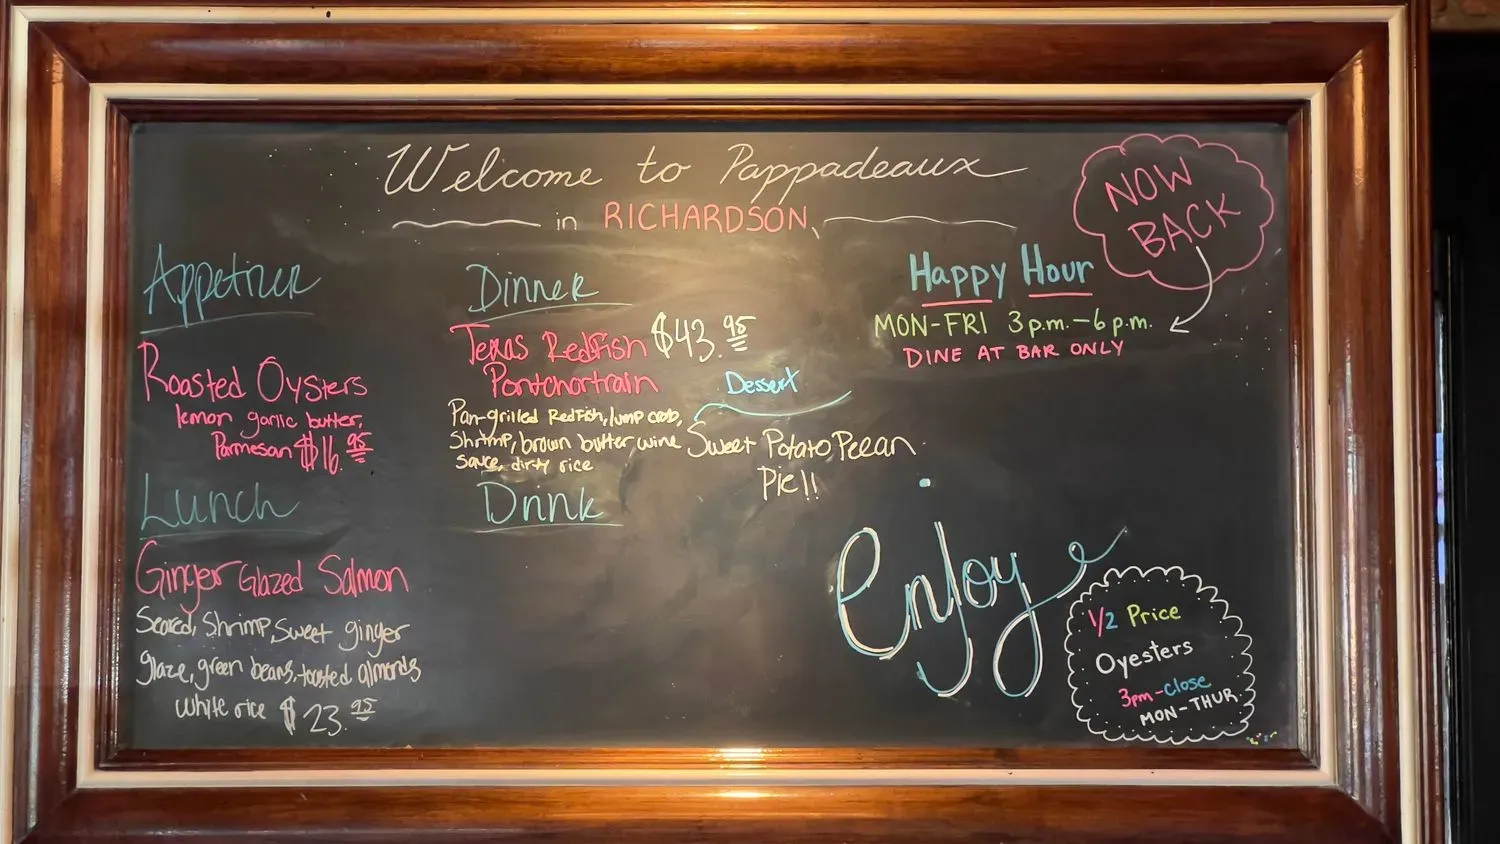 Welcome to Pappadeaux
in RICHARDSON,
NOW
BACK
Appetizer
Roasted Oysters
lemon garlic butter,
Parmesan $16.95
Lunch
Ginger Glazed Salmon
Seared, Shrimp, Sweet ginger
glaze, green beans, toasted almonds
white rice $23.95
Dinner
Texas Redfish $43.95
Pontchartrain
Pan-grilled Redfish, lump crab,
Shrimp, brown butter wine
sauce, dirty rice
Drink
Dessert
Sweet Potato Pecan
Pie!!
Happy Hour
MON-FRI 3p.m.-6p.m.
DINE AT BAR ONLY
enjoy
1/2 Price
Oyesters
3pm-close
MON-THUR